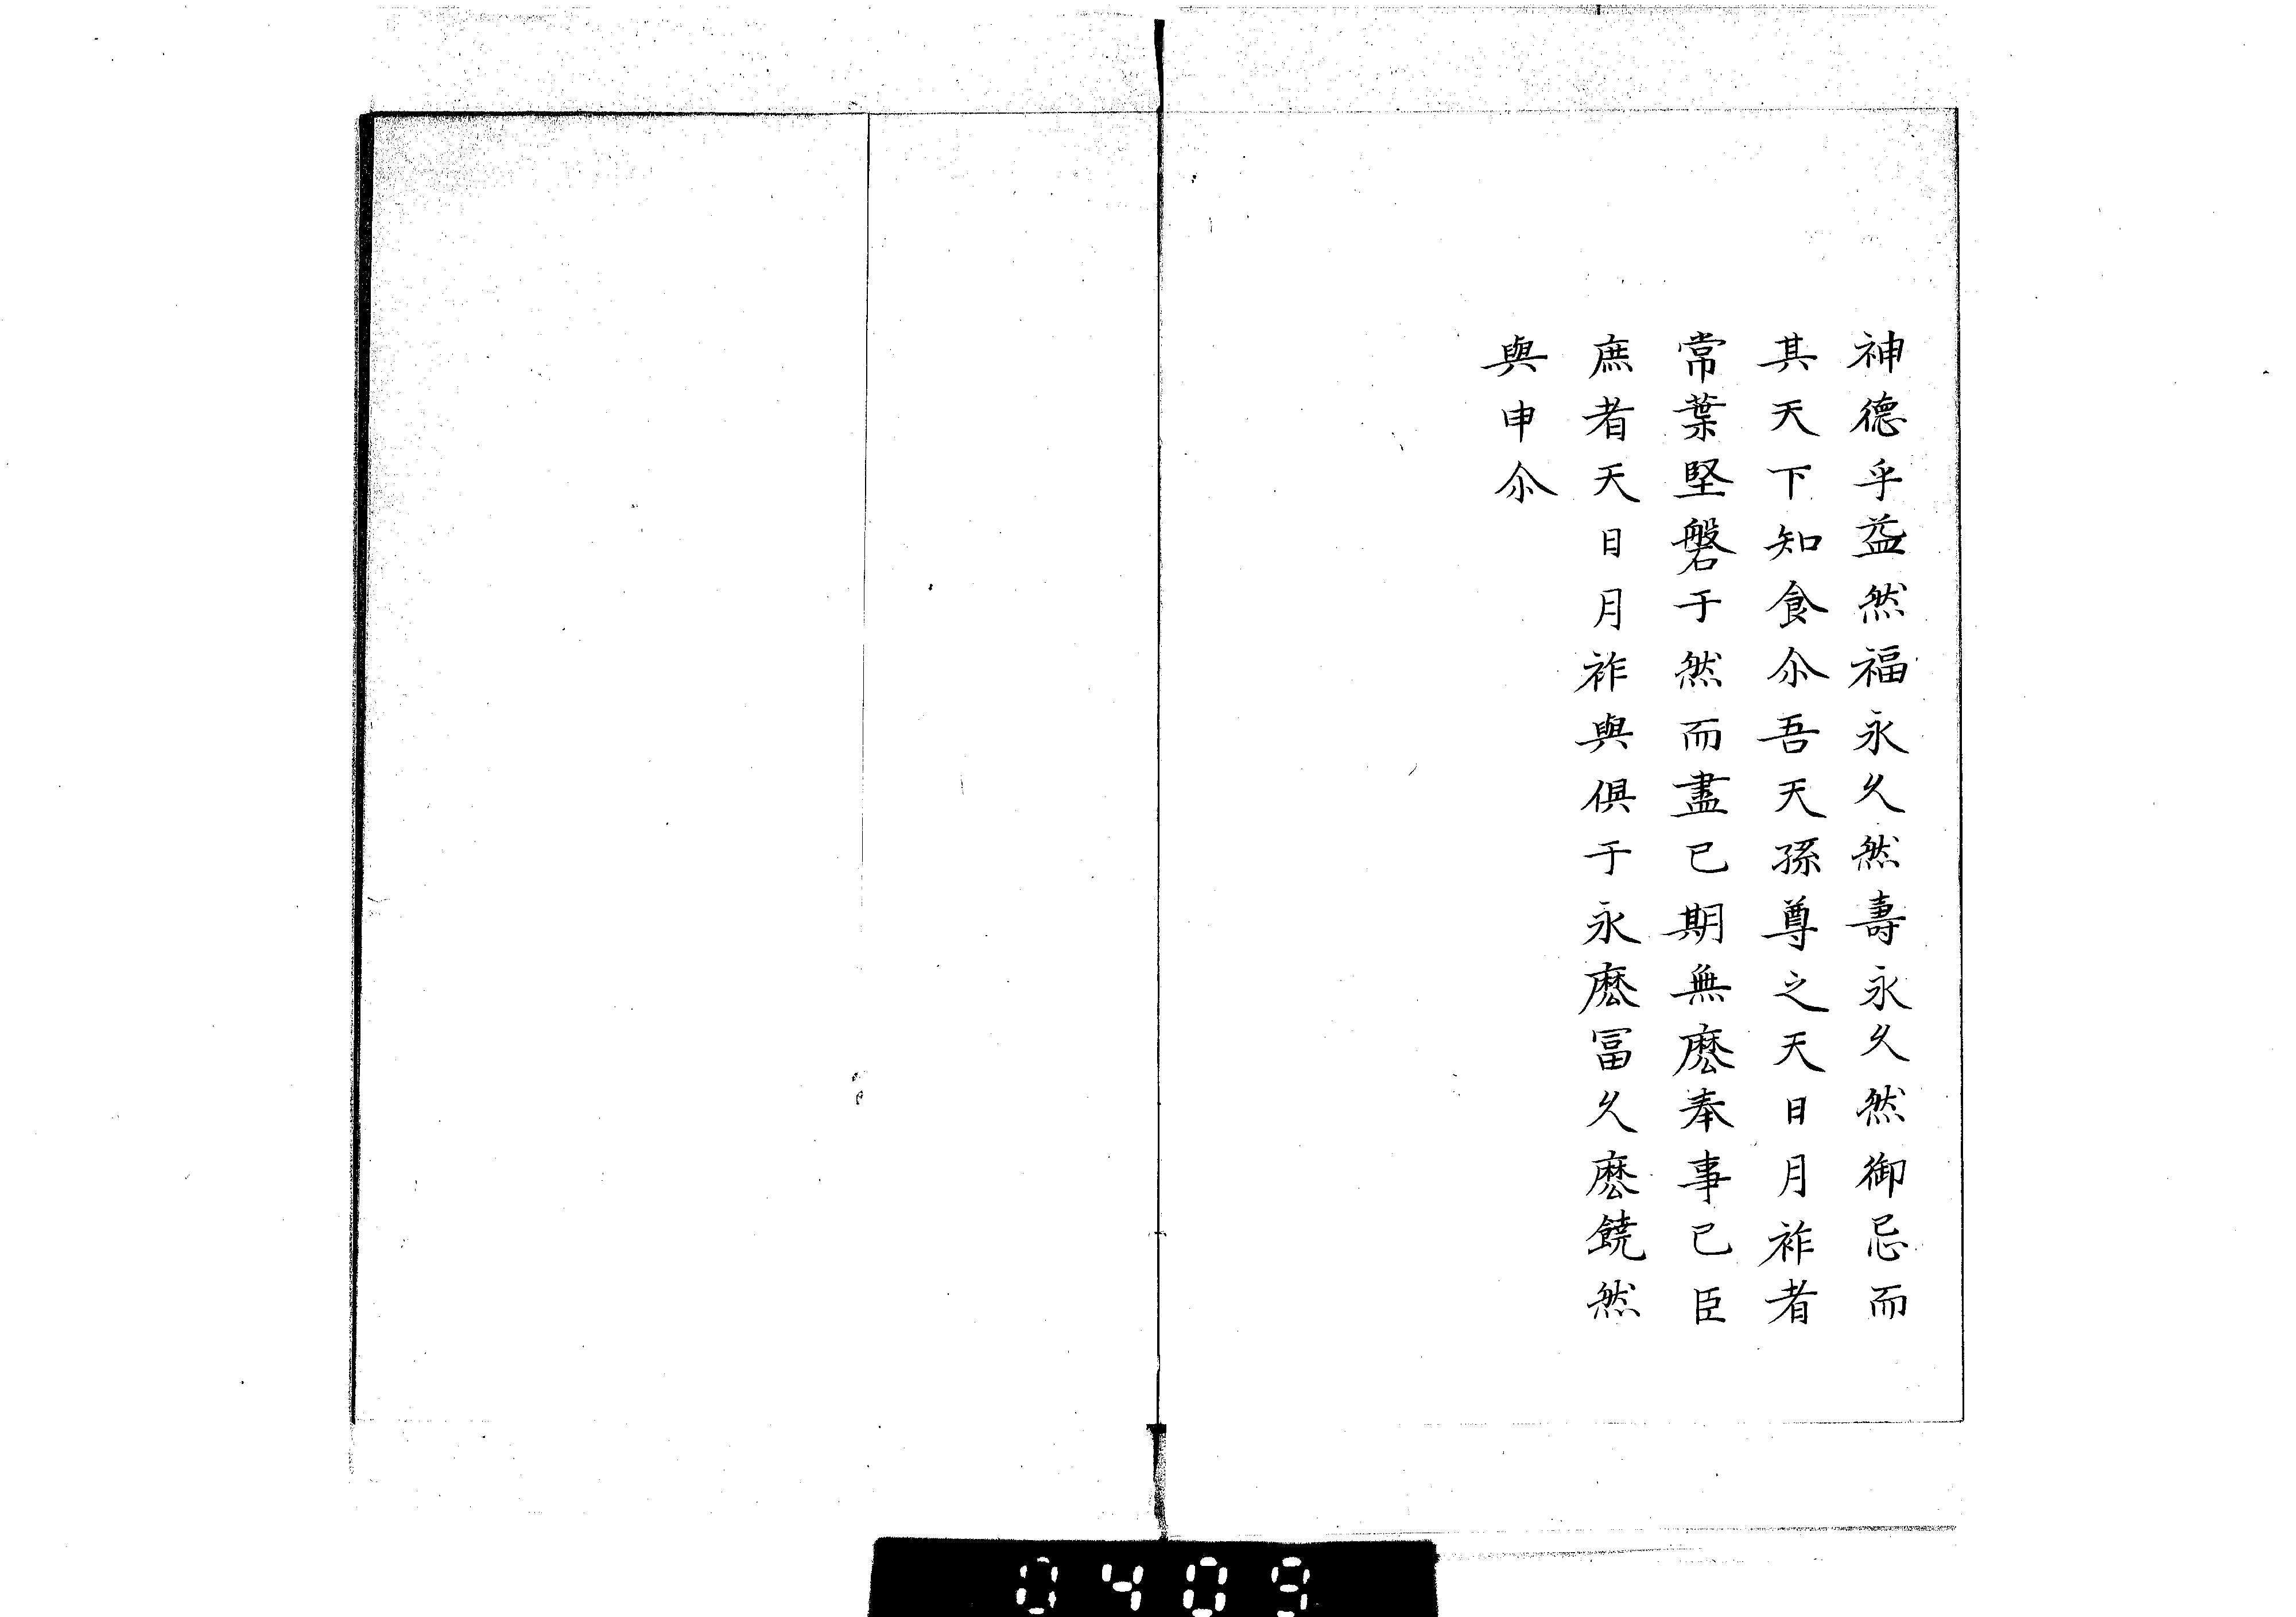 神德乎益然福永久然壽永久然御忌而
其天下知食尒吾天孫尊之天日月祚者
常葉堅磐于然而盡已期無麽奉事已臣
庶者天日月祚與俱于永麽冨久麽饒然
與申尒
0409